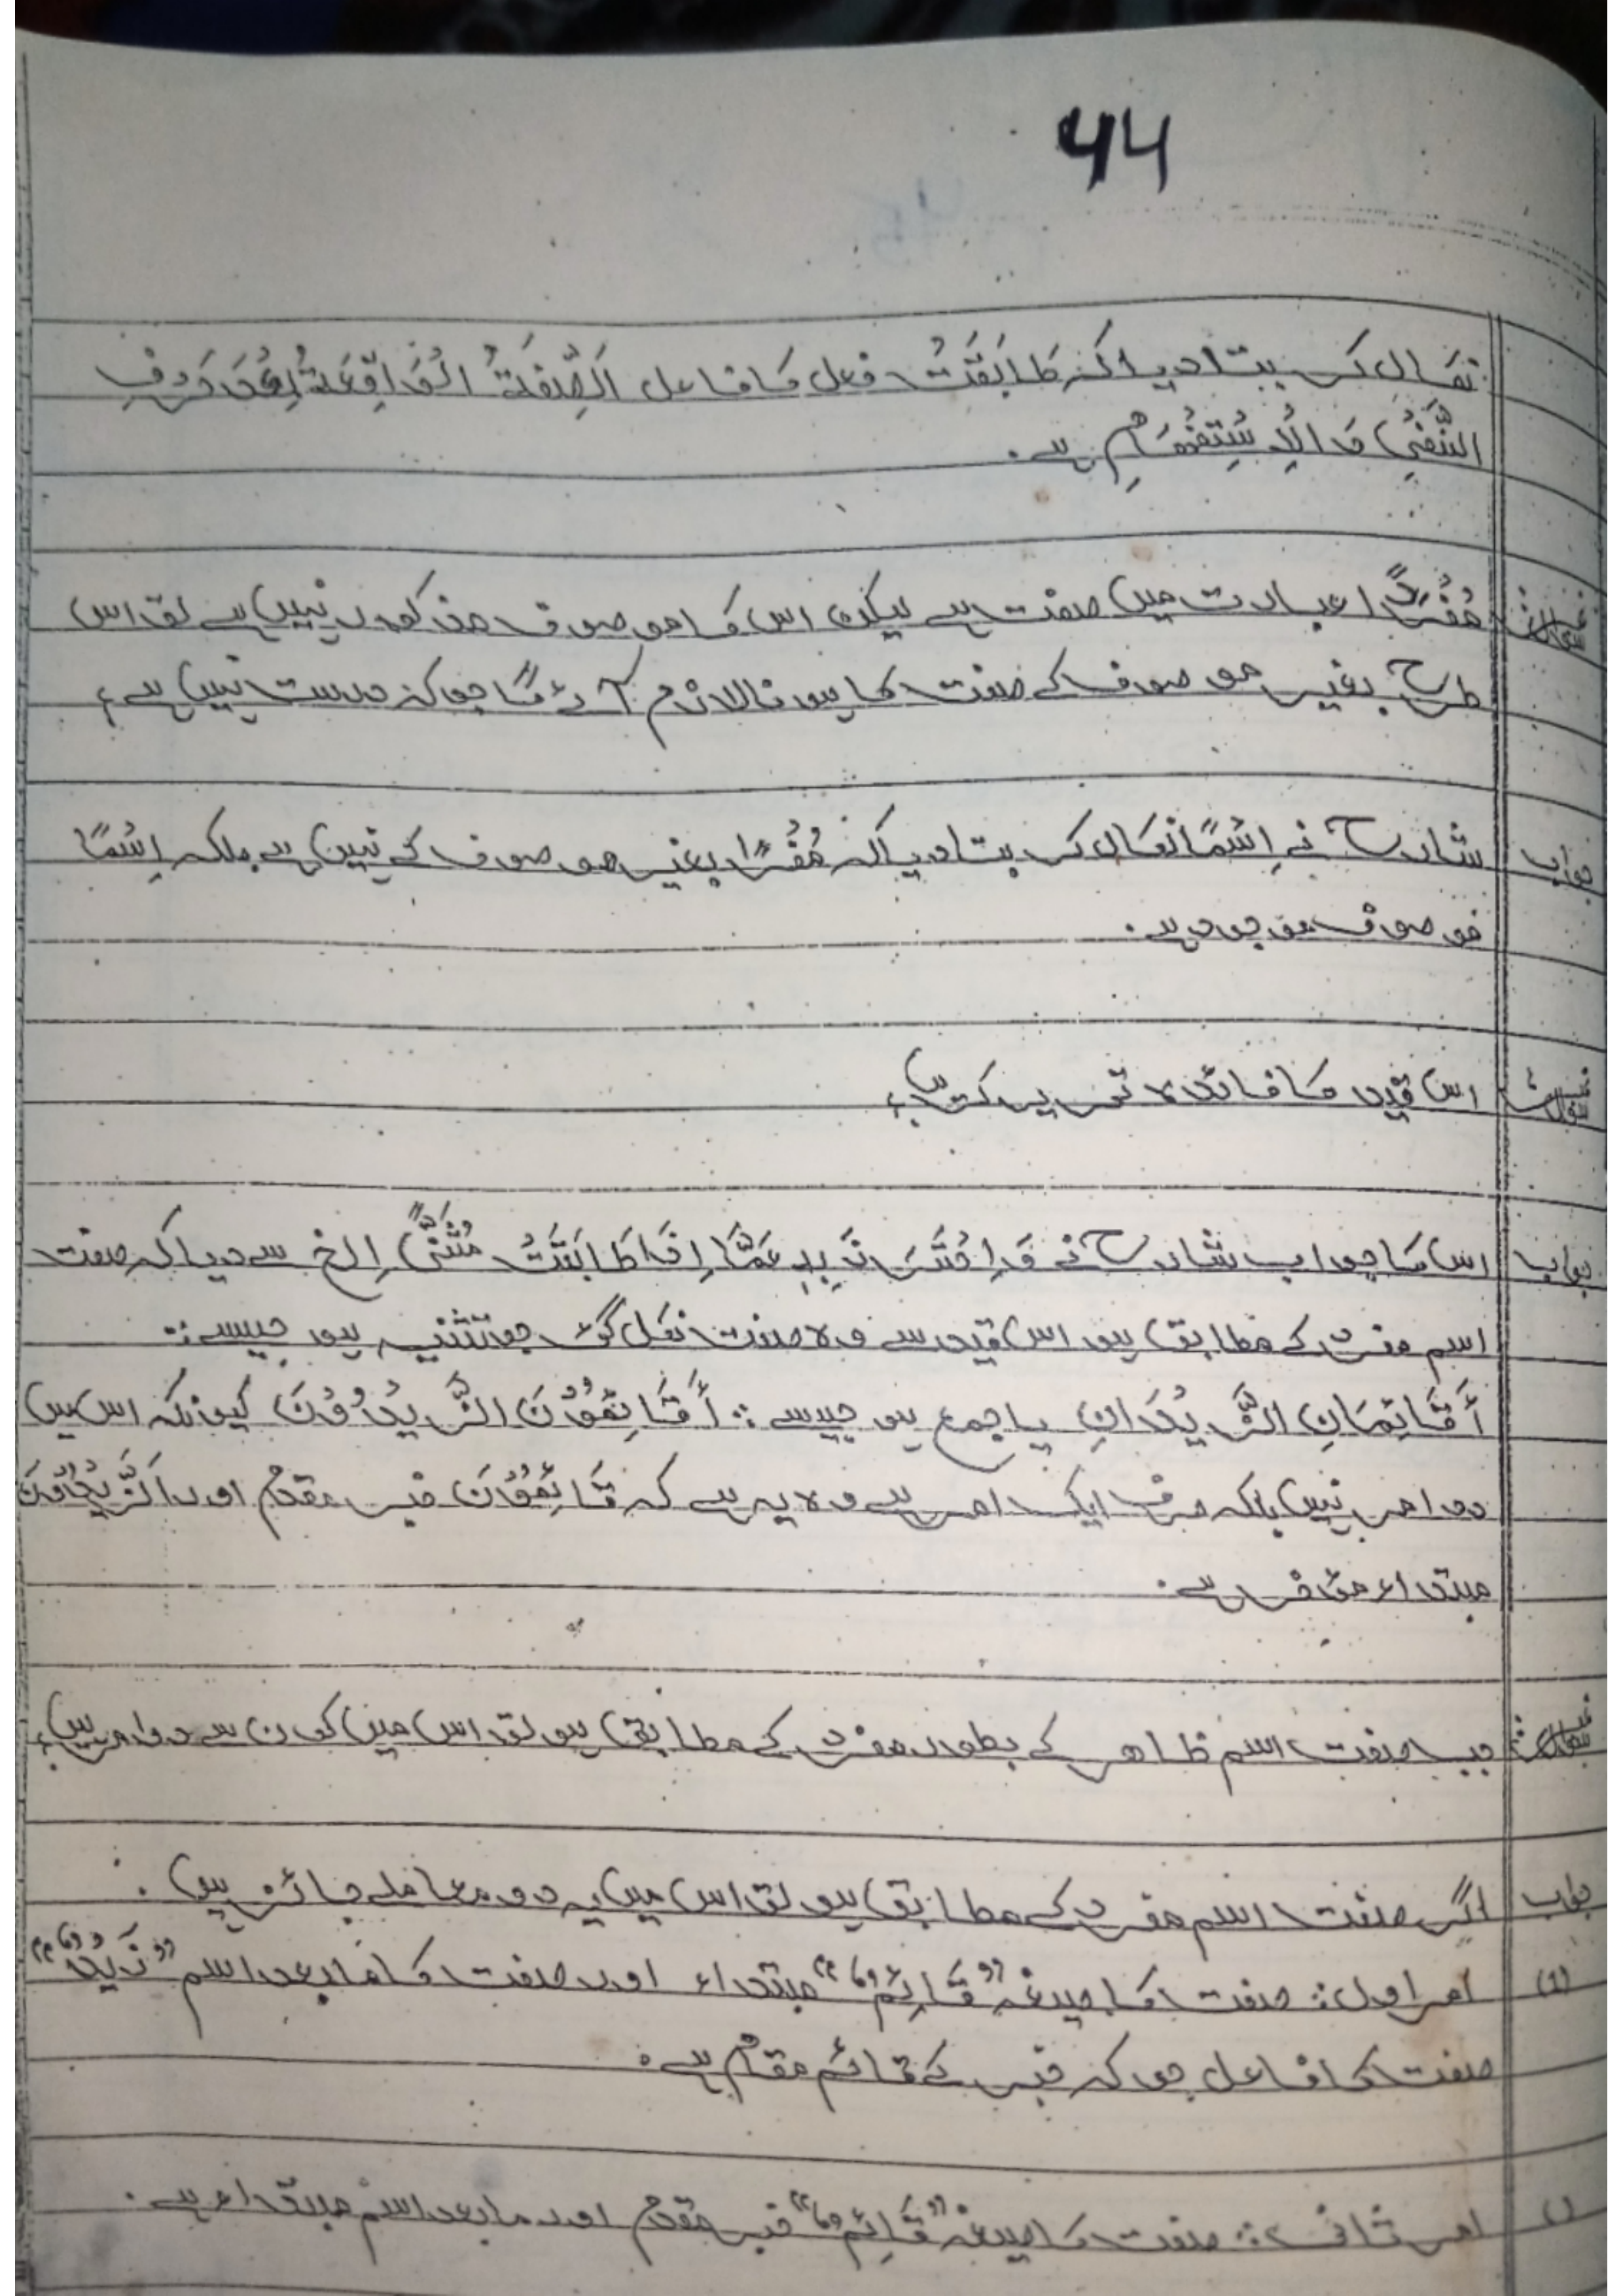 44
نکال کر بتادیا کہ طَابَقَتْ فعل کا فاعل اَلصِّفَةُ الْوَاقِعَةُ بَعْدَ حَرْفِ
النَّفْیِ وَالْاِسْتِفْهَامِ ہے۔
سوال مُفْرَدًا عبارت میں صفت ہے لیکن اس کا موصوف مذکور نہیں ہے تو اس
طرح بغیر موصوف کے صفت کا ہونا لازم آئے گا جو کہ درست نہیں ہے؟
جواب شارح نے اِسْمًا نکال کر بتادیا کہ مُفْرَدًا بغیر موصوف کے نہیں ہے بلکہ اِسْمًا
موصوف موجود ہے۔
سوال اس قید کا فائدہ تحریر کریں؟
جواب اس کا جواب شارح نے وَاحْتَرَزَ بِهٖ عَمَّا اِذَا طَابَقَتْ مُثَنًّی اِلخ سے دیا کہ صفت
اسم مفرد کے مطابق ہو اس قید سے وہ صفت نکل گئی جو تثنیہ ہو جیسے:
أَقَائِمَانِ الزَّیْدَانِ یا جمع ہو جیسے: أَقَائِمُوْنَ الزَّیْدُوْنَ کیونکہ اس میں
دو امر نہیں بلکہ صرف ایک امر ہے وہ یہ ہے کہ قَائِمُوْنَ خبر مقدم اور اَلزَّیْدُوْنَ
مبتداء مؤخر ہے۔
سوال جب صفت اسم ظاہر کے بطور مفرد کے مطابق ہو تو اس میں کون سے دو امر ہیں؟
جواب اگر صفت اسم مفرد کے مطابق ہو تو اس میں یہ دو معاملے جائز ہیں۔
(1) امر اول: صفت کا صیغہ "قَائِمٌ" مبتداء اور صفت کا مابعد اسم "زَیْدٌ"
صفت کا فاعل جو کہ خبر کے قائم مقام ہے۔
امر ثانی: صفت کا صیغہ "قَائِمٌ" خبر مقدم اور مابعد اسم مبتداء ہے۔